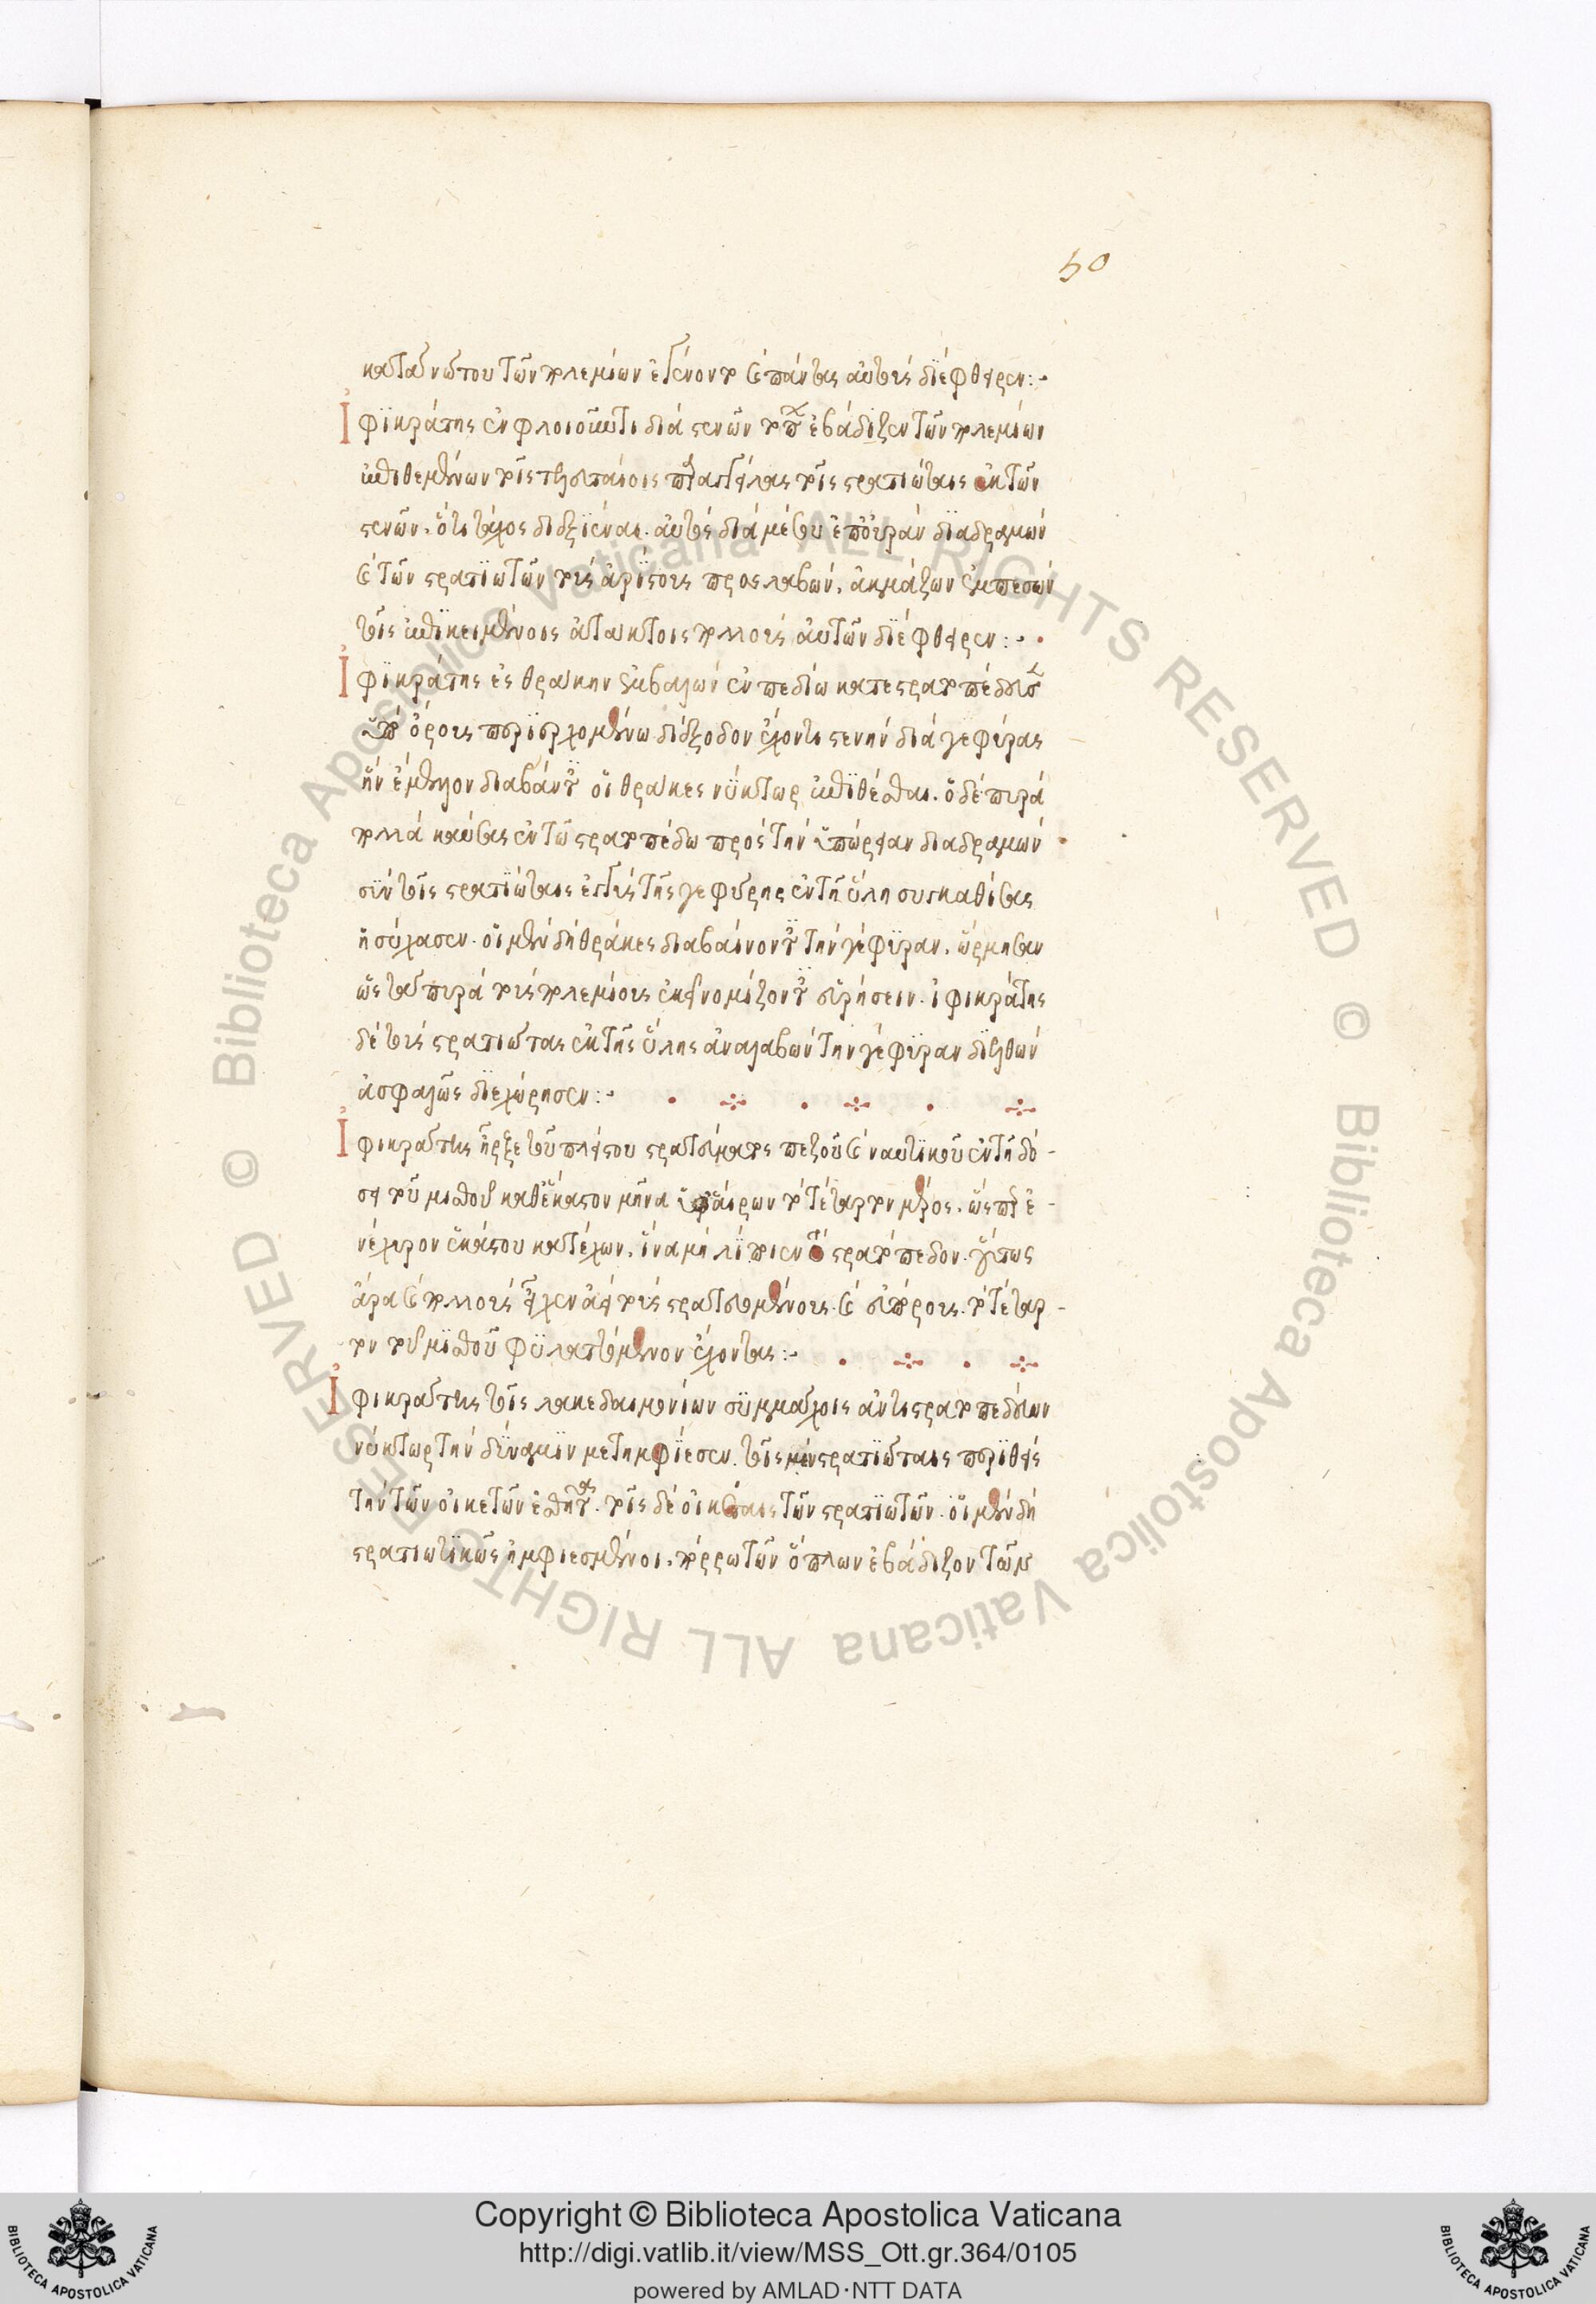 50
κατὰ νώτου τῶν πολεμίων ἐγένοντο καὶ πάντας αὐτοὺς διέφθειρεν:~
Ἰφικράτης ἐν φλοιοῦντι διὰ στενῶν τόπων ἐβάδιζεν τῶν πολεμίων
ἐπιθεμένων τοῖς τελευταίοις παραγγείλας τοῖς στρατιώταις ἐκ τῶν
στενῶν, ὅτι τάχος διεξϊέναι. αὐτὸς διὰ μέσου ἐπ' οὐρὰν διαδραμὼν
καὶ τῶν στρατϊωτῶν τοὺς ἀρίστους προσλαβὼν, ἀκμάζων ἐμπεσὼν
τοῖς ἐπϊκειμένοις ἀτάκτοις πολλοὺς αὐτῶν διέφθειρεν:~
Ἰφικράτης ἐς θράκην ἐμβαλὼν ἐν πεδίω κατεστρατοπέδευσεν
ὑπὸ ὄρους περϊερχομένω διέξοδον ἔχοντι στενὴν διὰ γεφύρας
ἣν ἔμελλον διαβάντες οἱ θράκες νύκτωρ ἐπϊθέσθαι. ὁ δὲ πυρὰ
πολλὰ καύσας ἐν τῶ στρατοπέδω πρὸς τὴν ὑπώρειαν διαδραμὼν
σὺν τοῖς στρατϊώταις ἐγγὺς τῆς γεφύρης ἐν τῆ ὕλη συγκαθίσας
ἡσύχασεν. οἱ μὲν δὴ θράκες διαβαίνοντες τὴν γέφυραν, ὥρμησαν
ὡς τὰ πυρὰ τοὺς πολεμίους ἐκεῖ νομίζοντες εὑρήσειν. ἰφικράτης
δὲ τοὺς στρατιώτας ἐκ τῆς ὕλης ἀναλαβὼν τὴν γέφυραν διελθὼν
ἀσφαλῶς διεχώρησεν:~
Ἰφικράτης ἦρξε τοῦ πλείστου στρατεύματος πεζοῦ καὶ ναυτϊκοῦ ἐν τῆ δό-
σει τοῦ μισθοῦ καθ' ἕκαστον μῆνα ὑφαίρων τὸ τέταρτον μέρος, ὥσπερ ἐ-
νέχυρον ἑκάστου κατέχων, ἵνα μὴ λίποιεν τὸ στρατόπεδον. οὕτως
ἄρα καὶ πολλοὺς εἶχεν ἀεὶ τοὺς στρατευομένους. καὶ εὐπόρους. τὸ τέταρ-
τον τοῦ μισθοῦ φϋλαττόμενον ἔχοντας:~
Ἰφικράτης τοῖς λακεδαιμονίων συμμάχοις ἀντιστρατοπεδεύων
νύκτωρ τὴν δύναμϊν μετημφίεσεν. τοῖς μὲν στρατϊώταις περϊθεὶς
τὴν τῶν οἰκετῶν ἐσθῆτα. τοῖς δὲ οἰκέταις τῶν στρατϊωτῶν. οἱ μὲν δὴ
στρατιωτϊκῶς ἠμφιεσμένοι, πόρρω τῶν ὅπλων ἐβάδιζον τῶν
Copyright © Biblioteca Apostolica Vaticana
http://digi.vatlib.it/view/MSS_Ott.gr.364/0105
powered by AMLAD·NTT DATA